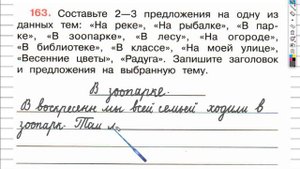 163. Составьте 2—3 предложения на одну из
данных тем: «На реке», «На рыбалке», «В пар-
ке», «В зоопарке», «В лесу», «На огороде»,
«В библиотеке», «В классе», «На моей улице»,
«Весенние цветы», «Радуга». Запишите заголовок
и предложения на выбранную тему.
В зоопарке.
В воскресенье мы всей семьёй ходили в
зоопарк. Там